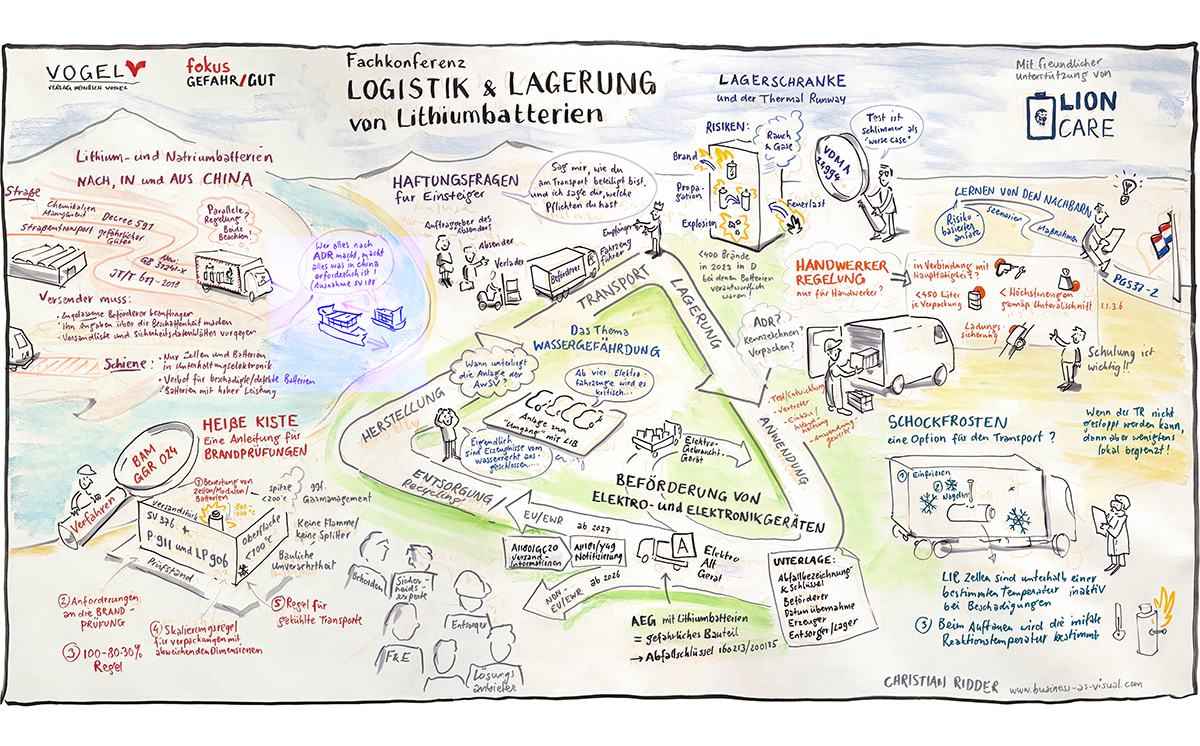 VOGEL
VERLAG HEINRICH VOGEL
fokus
GEFAHR/GUT
Fachkonferenz
LOGISTIK & LAGERUNG
von Lithiumbatterien
Mit freundlicher
unterstützung von
LION
CARE
Lithium- und Natriumbatterien
NACH, IN und AUS CHINA
Straße
Chemikalien
Decree 591
Straßentransport gefährlicher
Güter
Neu:
JT/T 617-2018
Parallele
Regelung?
Beide
Beachten!
Wer alles nach
ADR macht, macht
alles was in China
erforderlich ist!
Ausnahme SV 188
Versender muss:
• Zugelassene Beförderer beauftragen
• Ihn Angaben über die Beschaffenheit machen
• Versandliste und Sicherheitsdatenblätter vorlegen
Schiene:
• Nur Zellen und Batterien
in Unterhaltungselektronik
• Verbot für beschädigte/defekte Batterien
• Batterien mit hoher Leistung
HAFTUNGSFRAGEN
für Einsteiger
Sag mir, wie du
am Transport beteiligt bist.
und ich sage dir, welche
Pflichten du hast
Auftraggeber des
Absenders
Absender
Verlader
Beförderer
Empfänger
Fahrzeug
führer
LAGERSCHRÄNKE
und der Thermal Runway
RISIKEN:
Brand
Propa-
gation
Explosion
Rauch
& Gase
Feuerlast
VDMA
24994
Test ist
schlimmer als
"worse case"
<400 Brände
in 2023 in D
bei denen Batterien
verantwortlich
waren!
LERNEN VON DEN NACHBARN
Risiko-
basierten
ansatz
Szenarien
Maßnahmen
PGS37-2
HANDWERKER
REGELUNG
nur für Handwerker?
in Verbindung mit
Haupttätigkeit?
<450 Liter
je Verpackung
< Höchstmengen
gemäß Unterabschnitt
1.1.3.6
Ladungs-
sicherung
Schulung ist
wichtig!!
ADR?
Kennzeichnen?
Verpacken?
• Test/Entwicklung
• Vertreter
• Einbau/
• Anwendung
gewerbl.
TRANSPORT
LAGERUNG
ANWENDUNG
ENTSORGUNG
Recycling
HERSTELLUNG
Das Thema
WASSERGEFÄHRDUNG
Wann unterliegt
die Anlage der
AwSV?
Ab vier Elektro-
fahrzeuge wird es
kritisch...
Anlage zum
"Umgang" mit LIB
Eigentlich
sind Erzeugnisse vom
Wasserrecht aus-
geschlossen...
Elektro-
Gebraucht-
Gerät
BEFÖRDERUNG VON
ELEKTRO- und ELEKTRONIKGERÄTEN
EU/EWR
ab 2027
A1180/GC20
Versand-
informationen
A1181/Y49
Notifizierung
NON-
EU/EWR
ab 2026
A
Elektro
Alt
Gerät
AEG mit Lithiumbatterien
= gefährliches Bauteil
→ Abfallschlüssel 160213/200135
UNTERLAGE:
Abfallbezeichnung
& Schlüssel
Beförderer
Datum übernahme
Erzeuger
Entsorger/Lager
HEIẞE KISTE
Eine Anleitung für
BRANDPRÜFUNGEN
BAM
GGR 024
Verfahren
① Bewertung von
Zellen/Modulen/
Batterien
800-
1000°C
Versandstück
SV 376 +
P 911 und LP 906
Oberfläche
<100°C
Prüfstand
spitze
<200°C
ggf.
Gasmanagement
Keine Flamme/
keine Splitter
Bauliche
Unversehrtheit
② Anforderungen
an die BRAND-
PRÜFUNG
③ 100-80-30%
Regel
④ Skalierungsregel
für verpackungen mit
abweichenden Dimensionen
⑤ Regel für
gekühlte Transporte
Behörden
Sicher-
heits-
experte
Entsorger
F&E
Lösungs
anbieter
SCHOCKFROSTEN
eine Option für den Transport?
Wenn der TR nicht
gestoppt werden kann,
dann aber wenigstens
lokal begrenzt!
① Einfrieren
②
LIB Zellen sind unterhalb einer
bestimmten Temperatur inaktiv
bei Beschädigungen
③ Beim Auftauen wird die initiale
Reaktionstemperatur bestimmt
CHRISTIAN RIDDER
www.business-as-visual.com